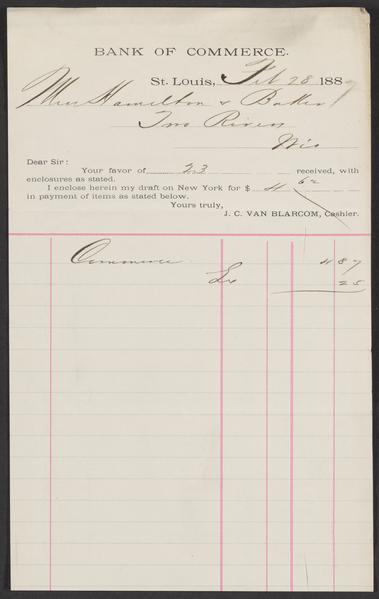 BANK OF COMMERCE.
St. Louis, Feb 28 1887
Mess Hamilton & Baker
Two Rivers
Wis
Dear Sir:
Your favor of 23 received, with
enclosures as stated.
I enclose herein my draft on New York for $ 4 62
in payment of items as stated below.
Yours truly,
J. C. VAN BLARCOM, Cashier.
Commerce 4 87
Ex 25